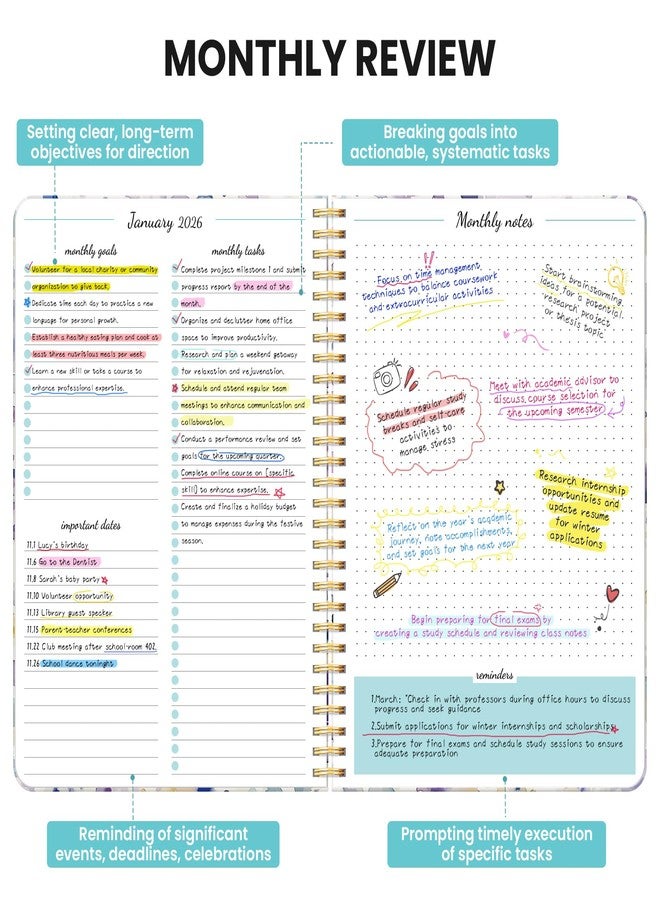 MONTHLY REVIEW
Setting clear, long-term
objectives for direction
Breaking goals into
actionable, systematic tasks
January 2026
monthly goals
Volunteer for a local charity or community
organization to give back.
Dedicate time each day to practice a new
language for personal growth.
Establish a healthy eating plan and cook at
least three nutritious meals per week.
Learn a new skill or take a course to
enhance professional expertise.
important dates
11.1 Lucy's birthday
11.6 Go to the Dentist
11.8 Sarah's baby party
11.10 Volunteer opportunity
11.13 Library guest speaker
11.15 Parent-teacher conferences
11.22 Club meeting after school-room 402
11.26 School dance toninght
monthly tasks
Complete project milestone 1 and submit
progress report by the end of the
month.
Organize and declutter home office
space to improve productivity.
Research and plan a weekend getaway
for relaxation and rejuvenation.
Schedule and attend regular team
meetings to enhance communication and
collaboration.
Conduct a performance review and set
goals for the upcoming quarter.
Complete online course on [specific
skill] to enhance expertise.
Create and finalize a holiday budget
to manage expenses during the festive
season.
Monthly notes
Focus on time management
techniques to balance coursework
and extracurricular activities
Start brainstorming
ideas for a potential
research project
or thesis topic
Schedule regular study
breaks and self-care
activities to
manage stress
Meet with academic advisor to
discuss course selection for
the upcoming semester
Research internship
opportunities and
update resume
for winter
applications
Reflect on the year's academic
journey, note accomplishments,
and set goals for the next year
Begin preparing for final exams by
creating a study schedule and reviewing class notes
reminders
1.March: "Check in with professors during office hours to discuss
progress and seek guidance
2.Submit applications for winter internships and scholarships
3.Prepare for final exams and schedule study sessions to ensure
adequate preparation
Reminding of significant
events, deadlines, celebrations
Prompting timely execution
of specific tasks